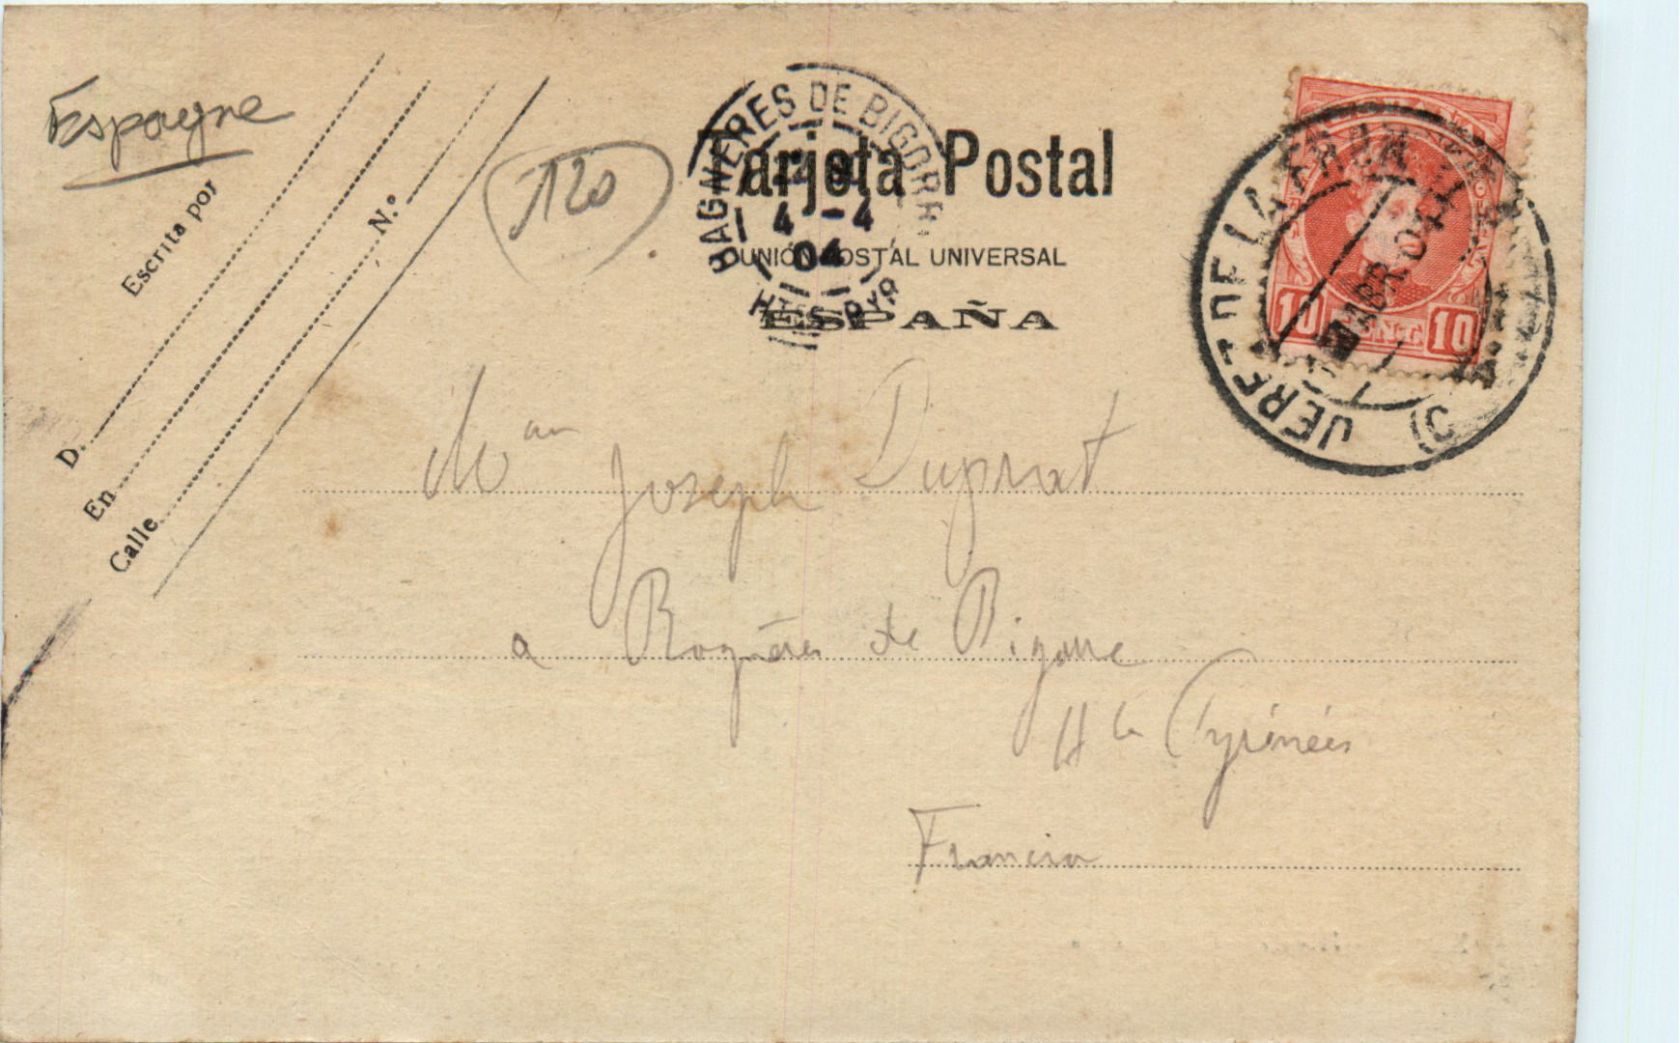 Espagne
120
Tarjeta Postal
UNIÓN POSTAL UNIVERSAL
ESPAÑA
BAGNERES DE BIGORRE
4 - 4
04
HTES PYR
JEREZ DE LA FRONTERA
ABR 04
10 CENT. 10
Escrita por
D.
En
Calle N.º
Joseph Duprat
a Bagnères de Bigorre
Htes Pyrénées
Francia